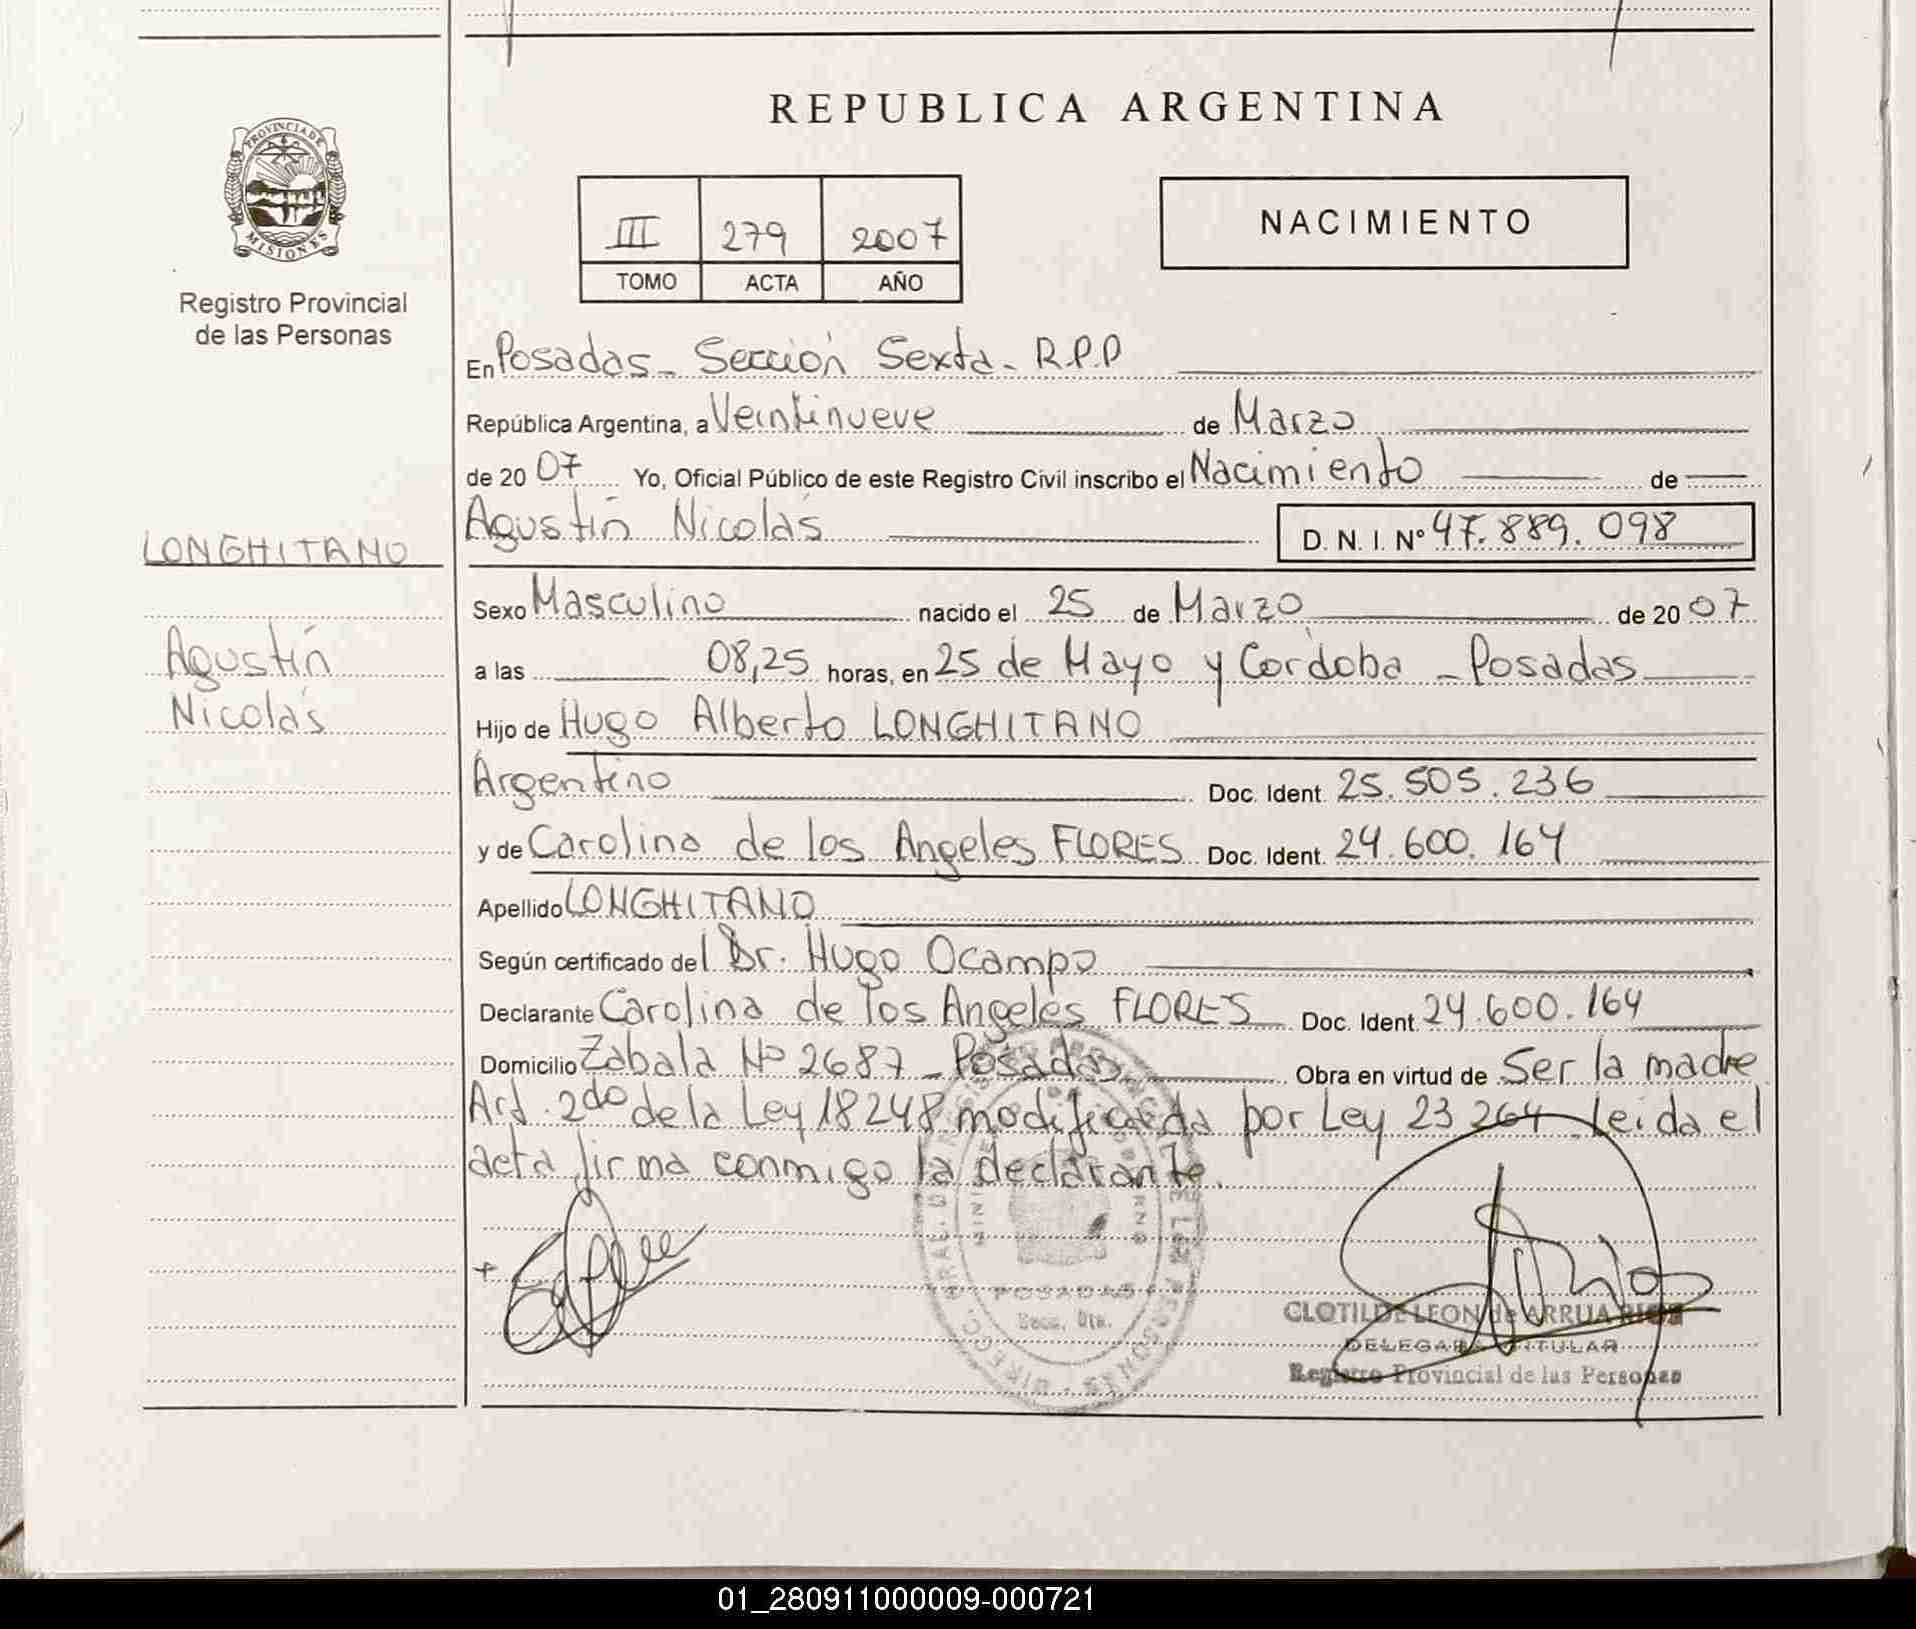 PROVINCIA DE
MISIONES
Registro Provincial
de las Personas
LONGHITANO
Agustín
Nicolás
REPUBLICA ARGENTINA
III 279 2007
TOMO ACTA AÑO
NACIMIENTO
En Posadas - Sección Sexta - R.P.P
República Argentina, a Veintinueve de Marzo
de 2007 Yo, Oficial Público de este Registro Civil inscribo el Nacimiento de
Agustín Nicolás D. N. I. Nº 47.889.098
Sexo Masculino nacido el 25 de Marzo de 2007
a las 08,25 horas, en 25 de Mayo y Cordoba - Posadas
Hijo de Hugo Alberto LONGHITANO
Argentino Doc. Ident. 25.505.236
y de Carolina de los Angeles FLORES Doc. Ident. 24.600.164
Apellido LONGHITANO
Según certificado del Dr. Hugo Ocampo
Declarante Carolina de los Angeles FLORES Doc. Ident. 24.600.164
Domicilio Zabala Nº 2687 - Posadas Obra en virtud de Ser la madre
Art. 2do de la Ley 18248 modificada por Ley 23264 Leida el
acta firma conmigo la declarante.
POSADAS
CLOTILDE LEON de ARRUA RIOS
DELEGADA TITULAR
Registro Provincial de las Personas
01_280911000009-000721